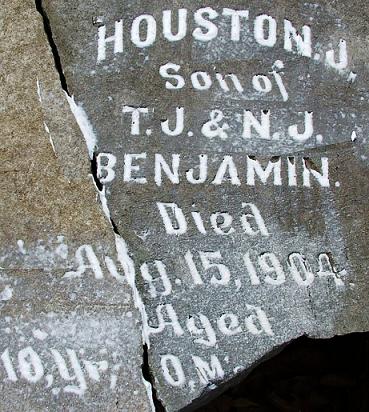 HOUSTON. J.
Son of
T. J. & N. J.
BENJAMIN.
Died
Aug. 15, 1904.
Aged
10, Yr, 0, M.